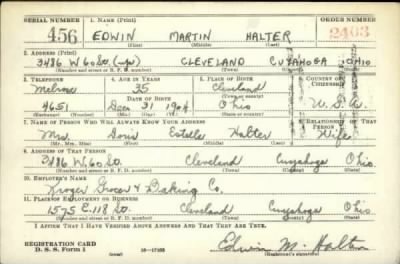 SERIAL NUMBER 1. NAME (Print) ORDER NUMBER
456 EDWIN MARTIN HALTER 2403
(First) (Middle) (Last)
2. ADDRESS (Print)
3486 W 60 St. (up) CLEVELAND CUYAHOGA OHIO
(Number and street or R. F. D. number) (Town) (County) (State)
3. TELEPHONE 4. AGE IN YEARS 5. PLACE OF BIRTH 6. COUNTRY OF CITIZENSHIP
Melrose 35 Cleveland
DATE OF BIRTH (Town or county)
4651 Dec 31 1904 Ohio U.S.A.
(Exchange) (Number) (Mo.) (Day) (Yr.) (State or country)
7. NAME OF PERSON WHO WILL ALWAYS KNOW YOUR ADDRESS 8. RELATIONSHIP OF THAT PERSON
Mrs. Doris Estelle Halter Wife
(Mr., Mrs., Miss) (First) (Middle) (Last)
9. ADDRESS OF THAT PERSON
3486 W. 60 St. Cleveland Cuyahoga Ohio
(Number and street or R. F. D. number) (Town) (County) (State)
10. EMPLOYER'S NAME
Kroger Grocery & Baking Co.
11. PLACE OF EMPLOYMENT OR BUSINESS
1575 E. 118 St. Cleveland Cuyahoga Ohio
(Number and street or R. F. D. number) (Town) (County) (State)
I AFFIRM THAT I HAVE VERIFIED ABOVE ANSWERS AND THAT THEY ARE TRUE.
REGISTRATION CARD
D. S. S. Form 1 Edwin M. Halter
(Registrant's signature)